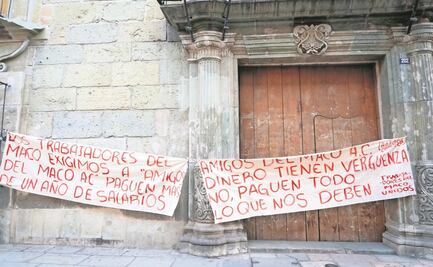 LOS TRABAJADORES DEL
MACO EXIGIMOS A "AMIGOS
DEL MACO AC PAGUEN MAS
DE UN AÑO DE SALARIOS
AMIGOS DEL MACO A.C.
DINERO TIENEN VERGUENZA
NO, PAGUEN TODO
LO QUE NOS DEBEN
MACO
UNIDOS
202